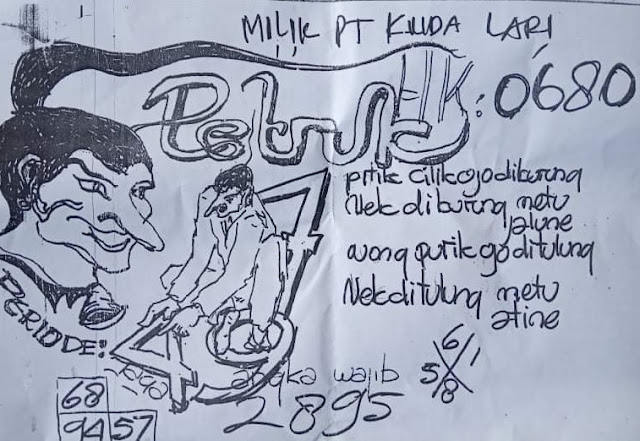 MILIK PT KUDA LARI
Petruk
HK: 0680
pitik cilik ojo diburung
Nek diburung metu
jalune
wong putih ojo ditulung
Nek ditulung metu
atine
PERIODE:
angka wajib
2895
6/1
5/8
68
94 57